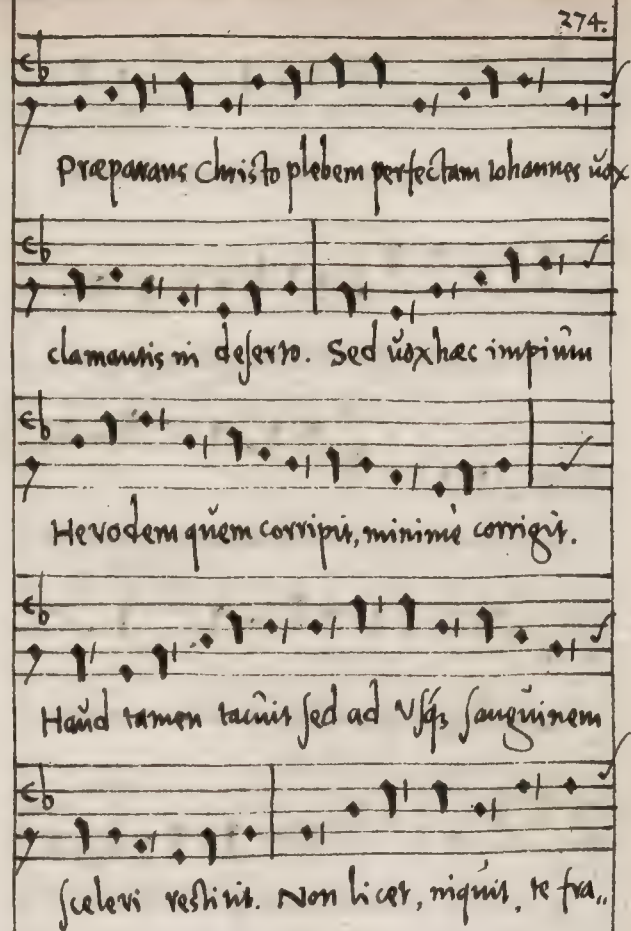 274.
Præparans Christo plebem perfectam Iohannes vox
clamantis in deserto. Sed vox hæc impium
Herodem quem corripit, minimè corrigit.
Haud tamen tacuit sed ad Usq₃ sanguinem
sceleri restitit. Non licet, inquit, te fra„